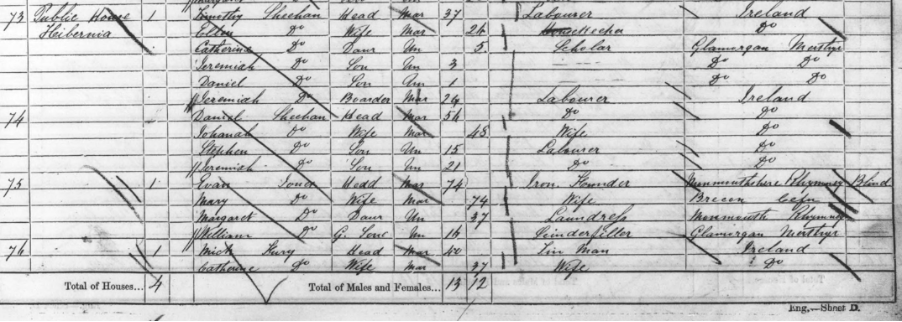 73 Public House 1 Timothy Sheehan Head Mar 37 Labourer Ireland
Heibernia Ellen Do Wife Mar 24 Do
Catherine Do Daur Un 5 Scholar Glamorgan Merthyr
Jeremiah Do Son Un 3 Do Do
Daniel Do Son Un 1 Do Do
Jeremiah Do Boarder Mar 26 Labourer Ireland
74 Daniel Sheehan Head Mar 54 Do Do
Johanah Do Wife Mar 45 Wife Do
Stephen Do Son Un 15 Labourer Do
Jeremiah Do Son Un 21 Do Do
75 1 Evan Jones Head Mar 74 Iron Founder Monmouthshire Rhymney Blind
Mary Do Wife Mar 74 Wife Brecon Cefn
Margaret Do Daur Un 37 Laundress Monmouth Rhymney
William Do G. Sone Un 16 Glamorgan Merthyr
76 1 Mick Head Mar 40 Tin Man Ireland
Catherine Do Wife Mar 37 Wife Do
Total of Houses... 4 Total of Males and Females... 13 12
Eng.—Sheet D.